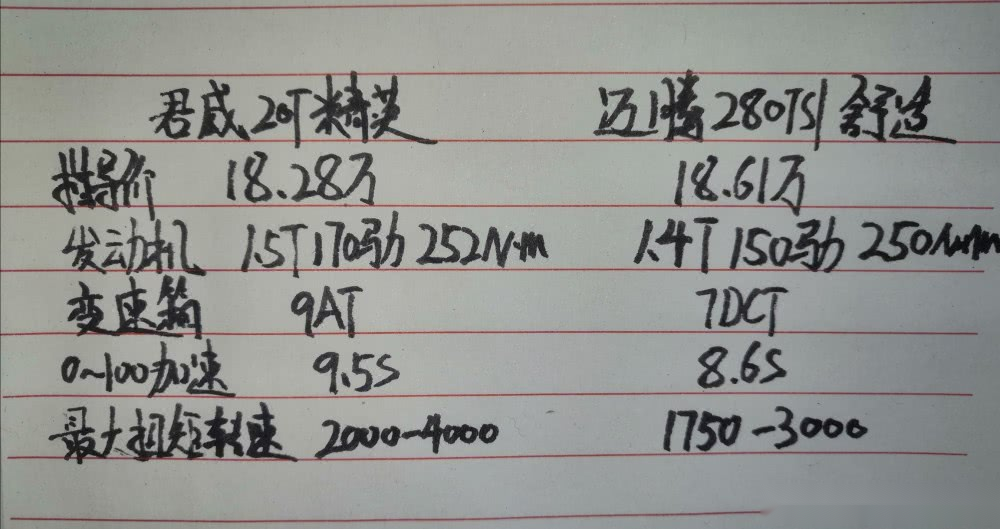 君威20T精英 迈腾280TSI舒适
指导价 18.28万 18.61万
发动机 1.5T 170马力 252N·m 1.4T 150马力 250N·m
变速箱 9AT 7DCT
0~100加速 9.5S 8.6S
最大扭矩转速 2000-4000 1750-3000